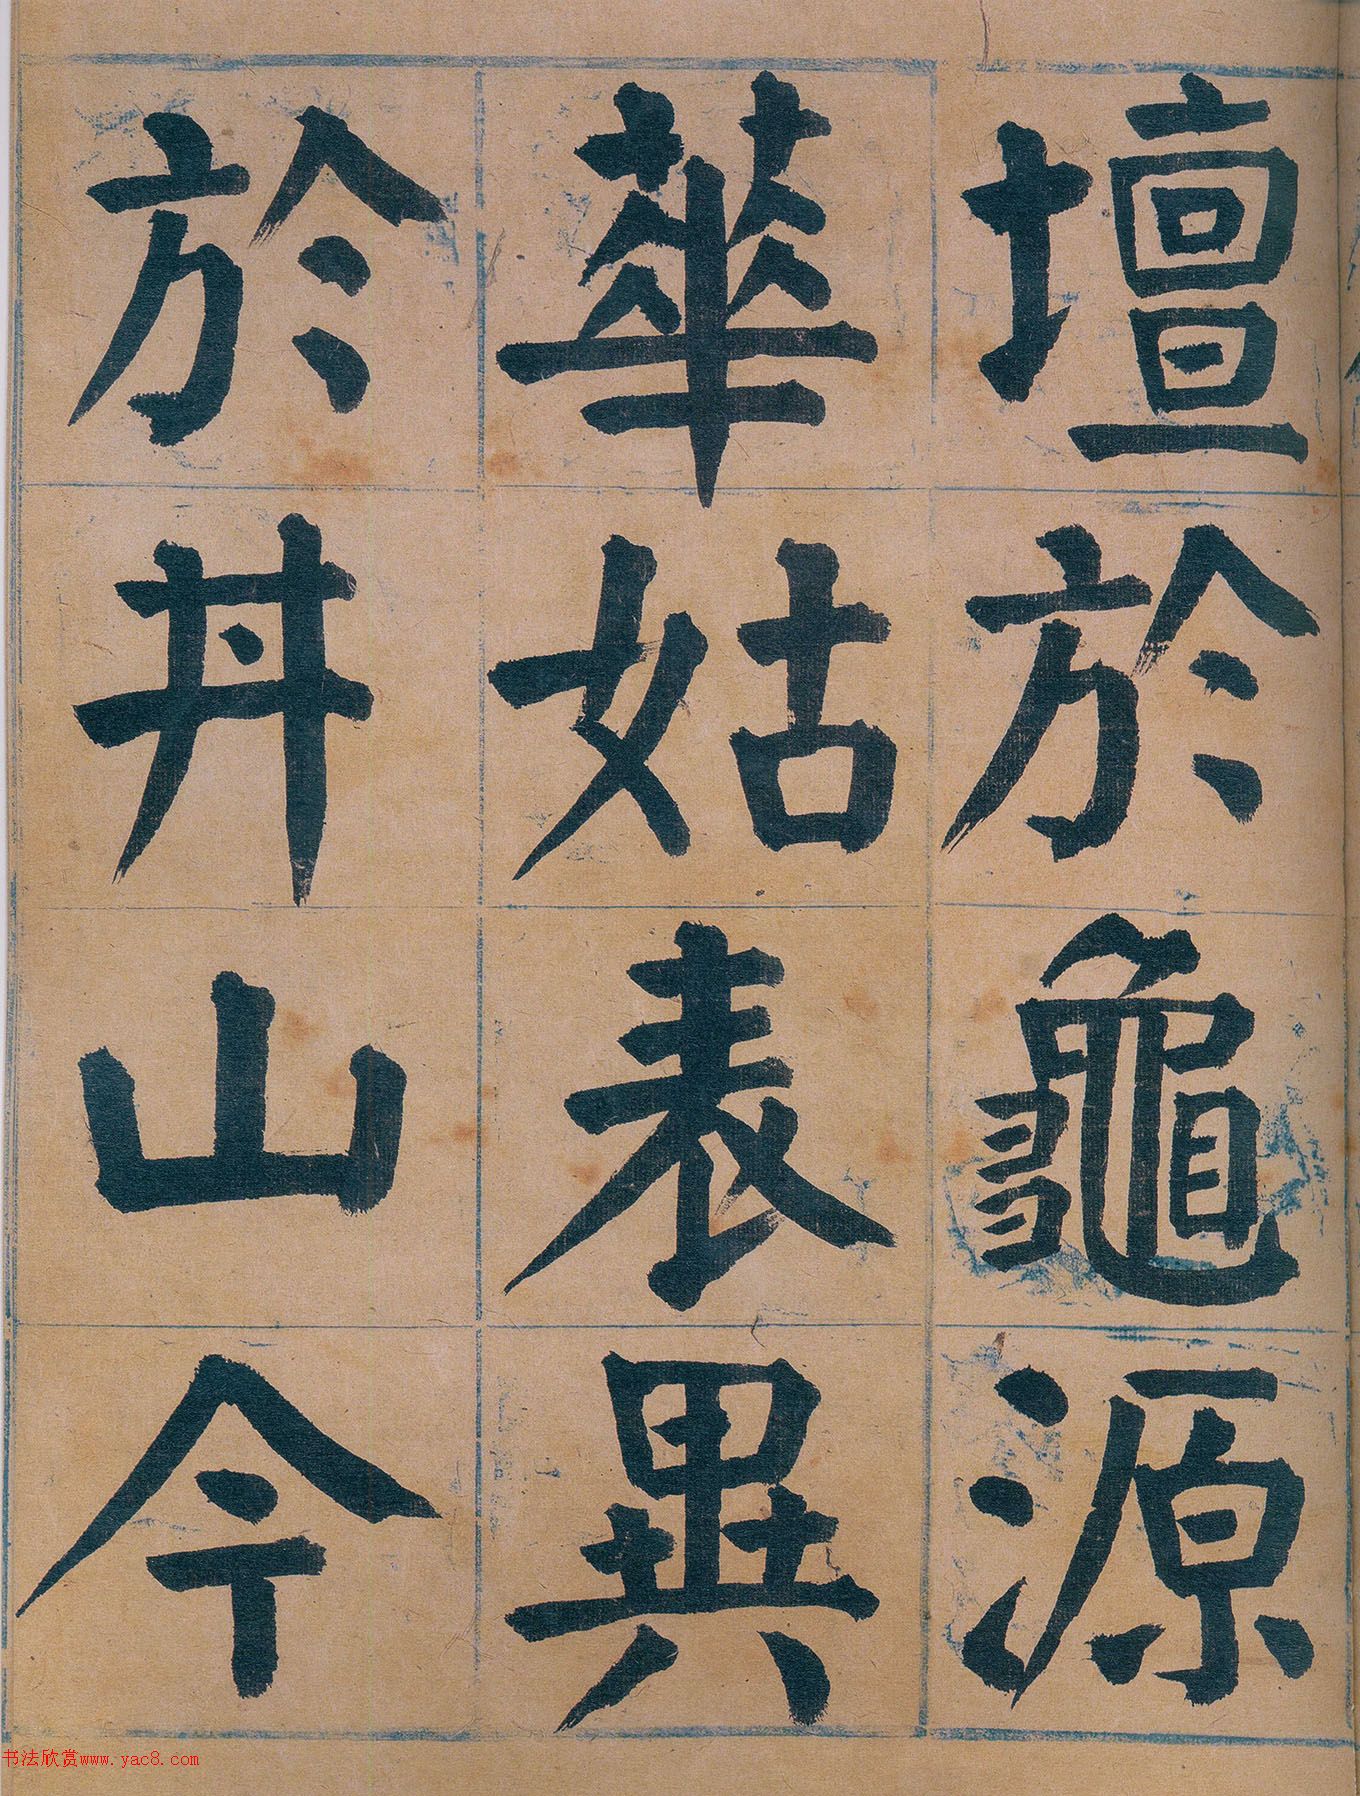 壇於龜源
華姑表異
於井山今
书法欣赏www.yac8.com